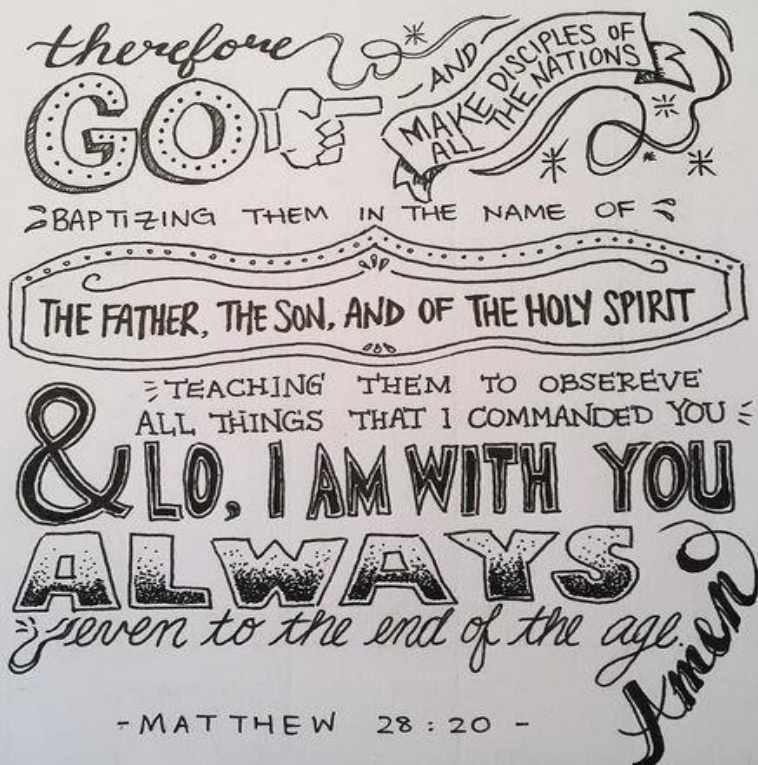 therefore
GO AND
MAKE DISCIPLES OF
ALL THE NATIONS
BAPTIZING THEM IN THE NAME OF
THE FATHER, THE SON, AND OF THE HOLY SPIRIT
TEACHING THEM TO OBSEREVE
ALL THINGS THAT I COMMANDED YOU
& LO, I AM WITH YOU
ALWAYS
even to the end of the age.
Amen
-MATTHEW 28:20-